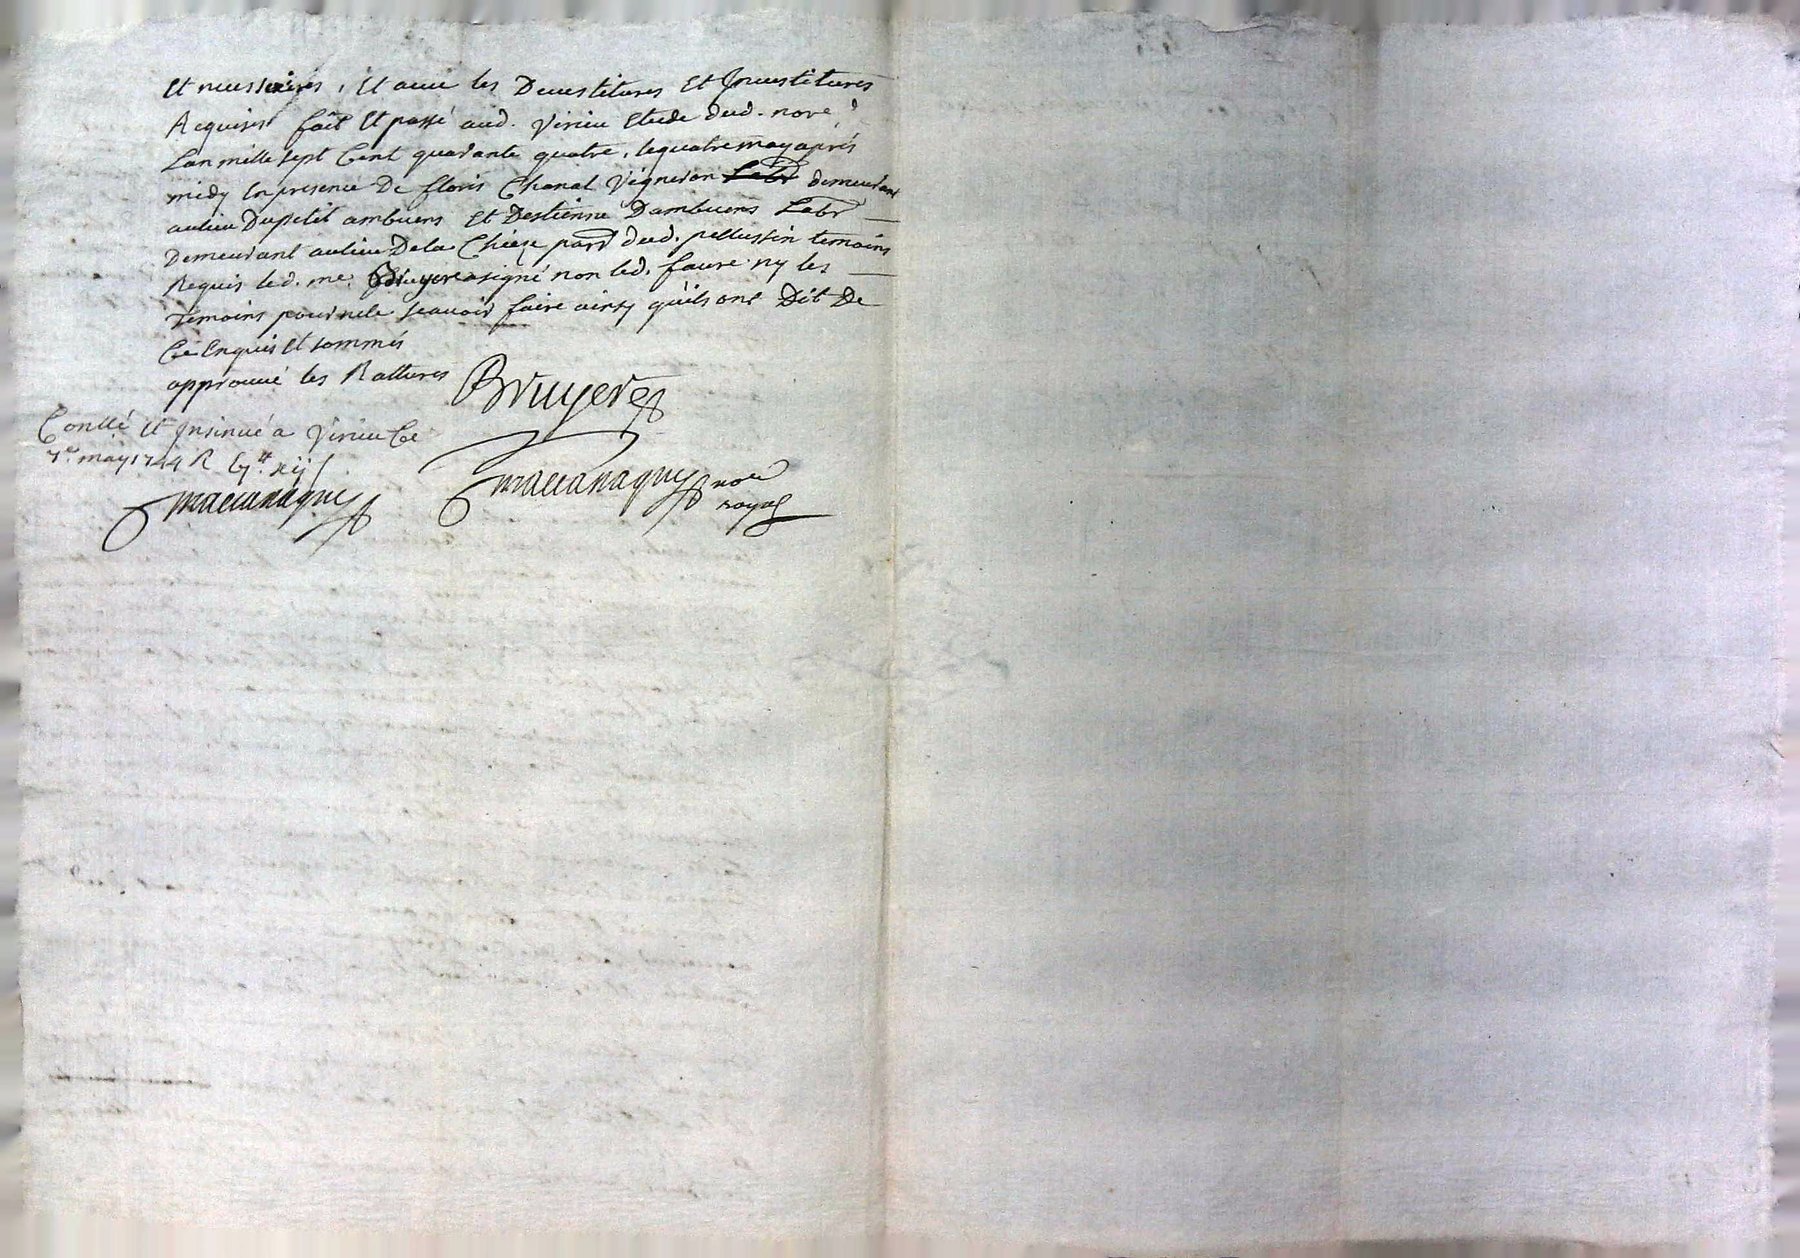 et necessaires, et avec les Devestitures et Investitures
Requises fait et passé aud. Virieu etude dud. nore.
L'an mille sept Cent quarante quatre, le quatre may après
midy en presence De floris Chanal Vigneron Labr demeurant
au lieu Du petit ambuens et D'estienne Dambuens Labr
Demeurant au lieu De la Chieze parr dud. pellussin temoins
Requis led. me. Bruyere a signé non led. faure ny les
temoins pour ne le scavoir faire ainsy qu'ils ont Dit De
Ce Enquis et sommés
approuvé les Rattures
Bruyere
Conllé et Insinué a Virieu Ce
7e. may 1744 R